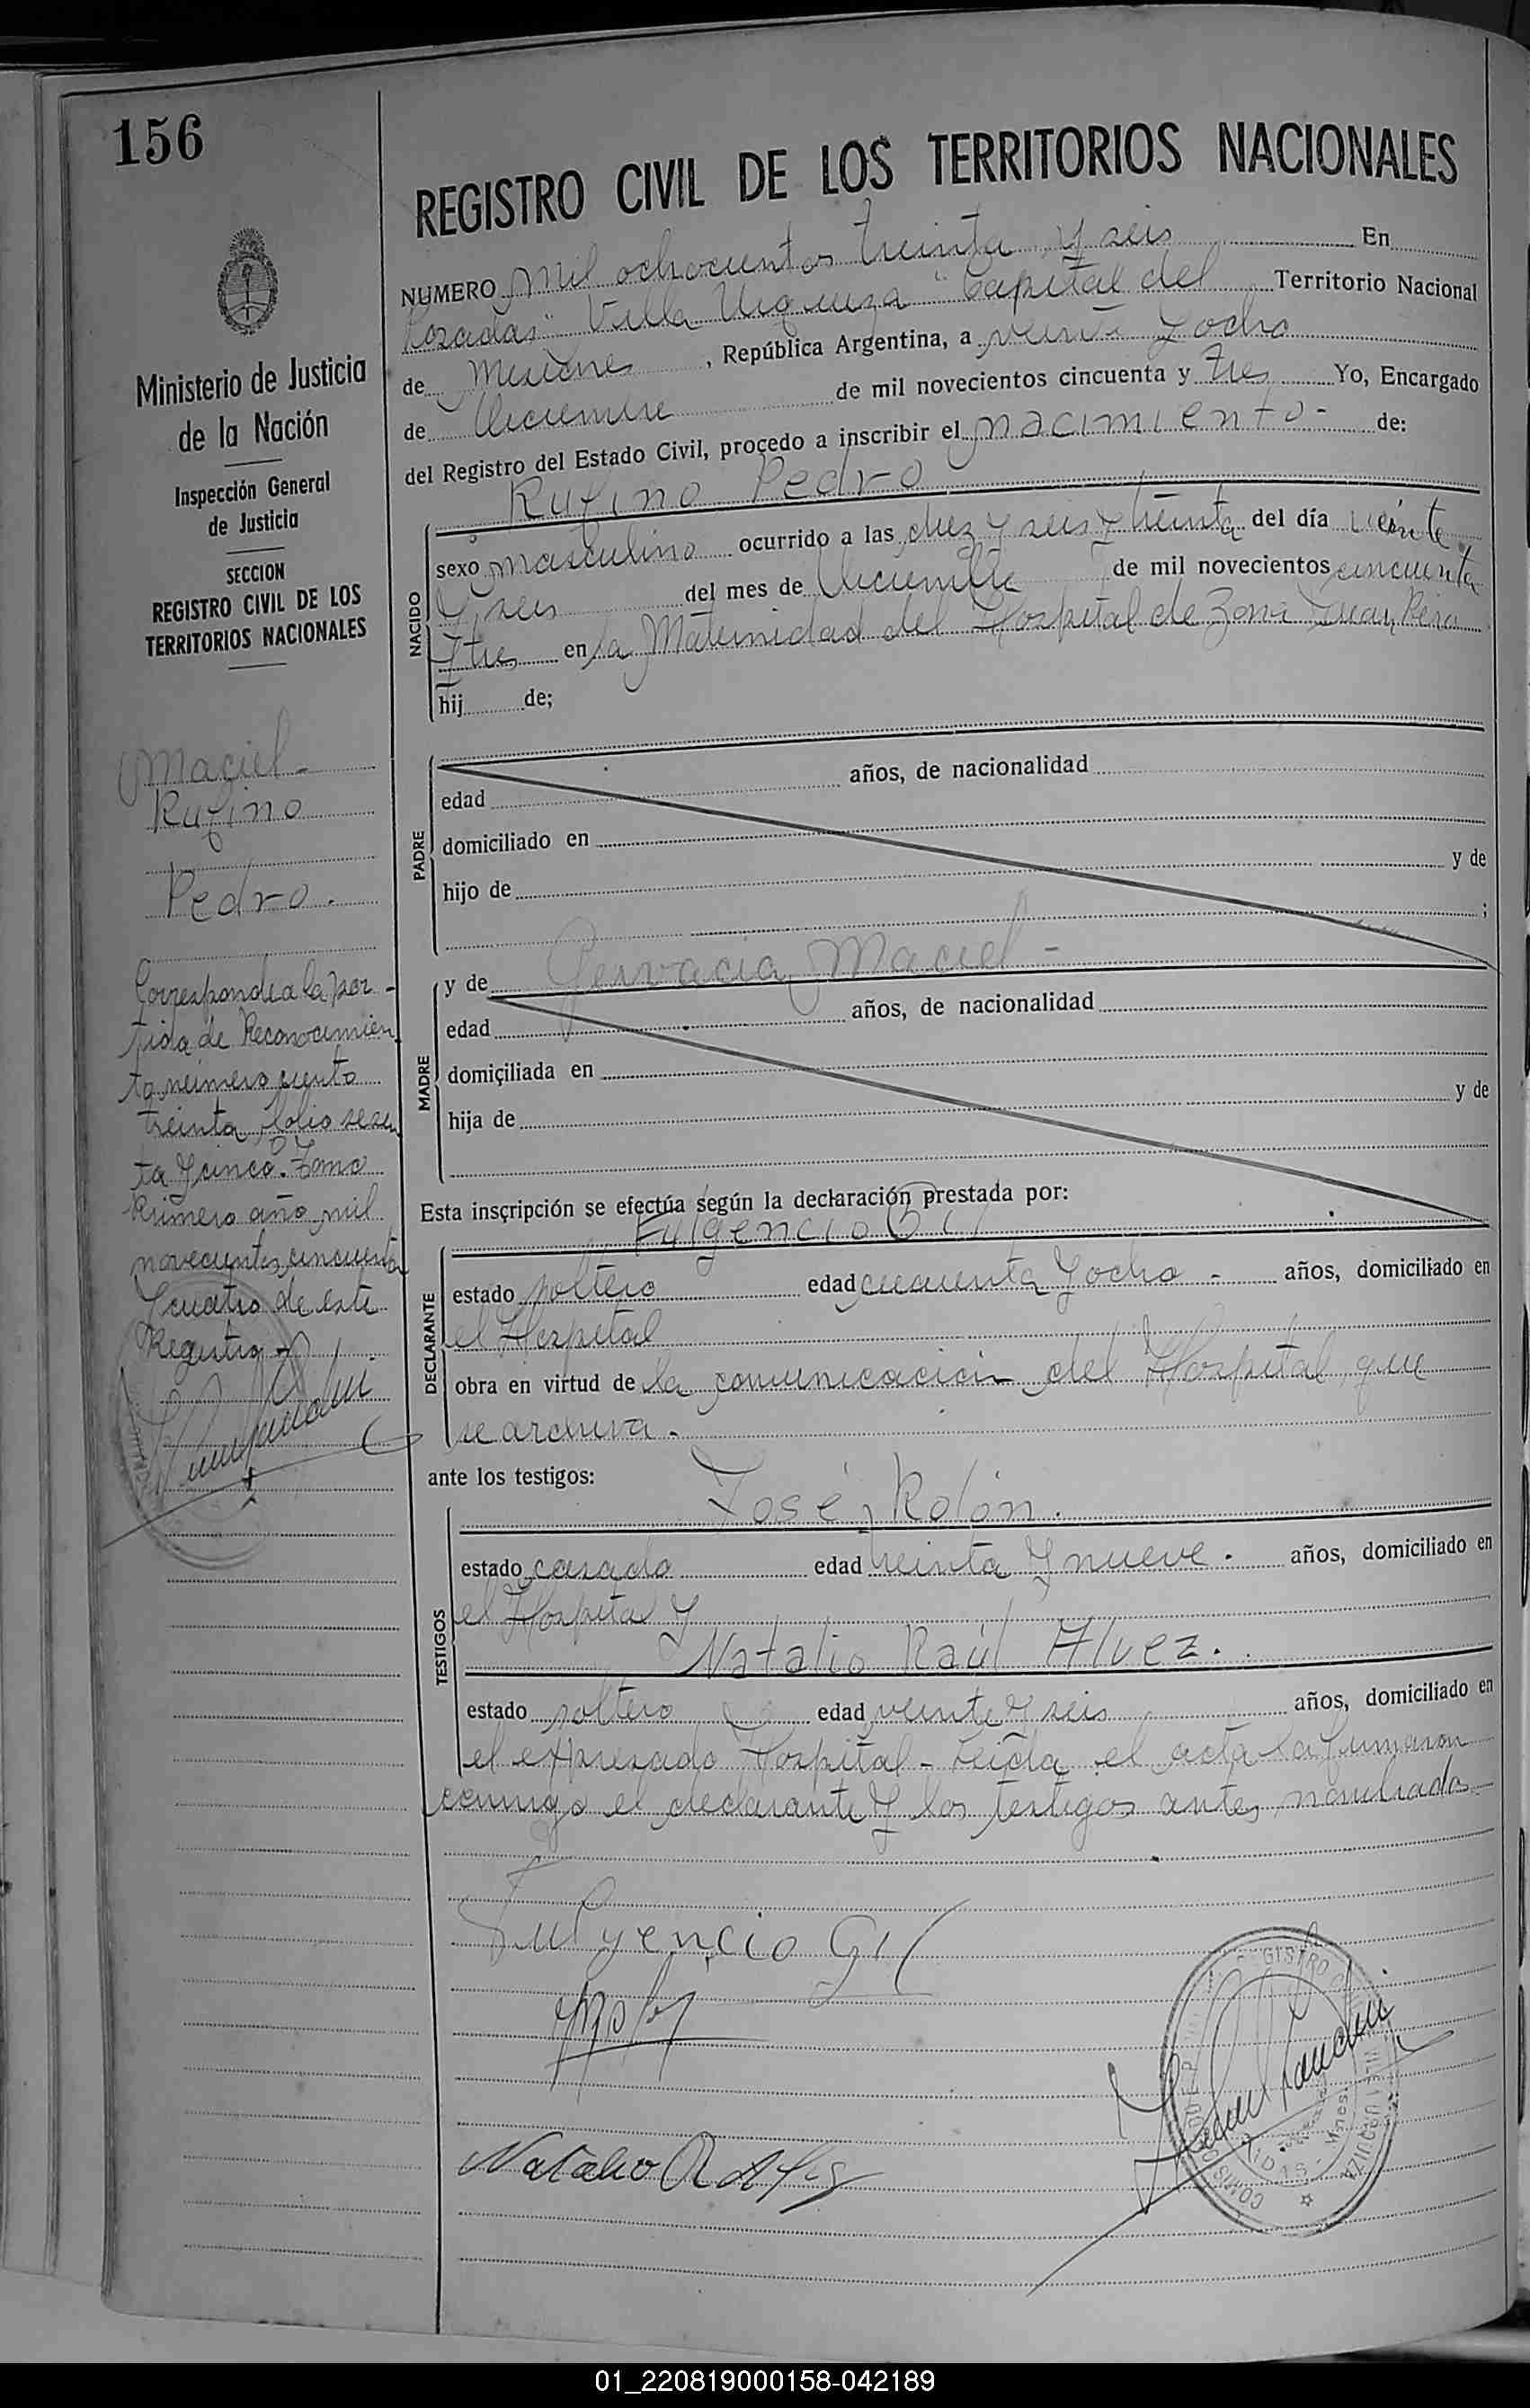 156
Ministerio de Justicia
de la Nación
Inspección General
de Justicia
SECCION
REGISTRO CIVIL DE LOS
TERRITORIOS NACIONALES
Maciel -
Rufino
Pedro.
Corresponde a la par -
tida de Reconocimien
to número ciento
treinta, folio sesen
ta y cinco. Tomo
Primero año mil
novecientos cincuenta
y cuatro de este
Registro -
REGISTRO CIVIL DE LOS TERRITORIOS NACIONALES
NUMERO Mil ochocientos treinta y seis En
Posadas "Villa Urquiza" Capital del Territorio Nacional
de Misiones, República Argentina, a veinte y ocho
de Diciembre de mil novecientos cincuenta y tres Yo, Encargado
del Registro del Estado Civil, procedo a inscribir el nacimiento - de:
Rufino Pedro
NACIDO
sexo masculino ocurrido a las diez y seis y treinta del día veinte
y seis del mes de Diciembre de mil novecientos cincuenta
y tres en la Maternidad del Hospital de Zona Juan Perón
hij de;
PADRE
edad años, de nacionalidad
domiciliado en
hijo de y de
;
MADRE
y de Gervacia Maciel -
edad años, de nacionalidad
domiciliada en
hija de y de
Esta inscripción se efectúa según la declaración prestada por:
Fulgencio Gil
DECLARANTE
estado soltero edad cuarenta y ocho - años, domiciliado en
el Hospital
obra en virtud de la comunicación del Hospital que
se archiva.
ante los testigos:
José Rolón.
TESTIGOS
estado casado edad treinta y nueve. años, domiciliado en
el Hospital y
Natalio Raúl Alvez.
estado soltero edad veinte y seis años, domiciliado en
el expresado Hospital - Leída el acta la firmaron
conmigo el declarante y los testigos antes nombrados
Fulgencio Gil
Natalio R Alvez
01_220819000158-042189